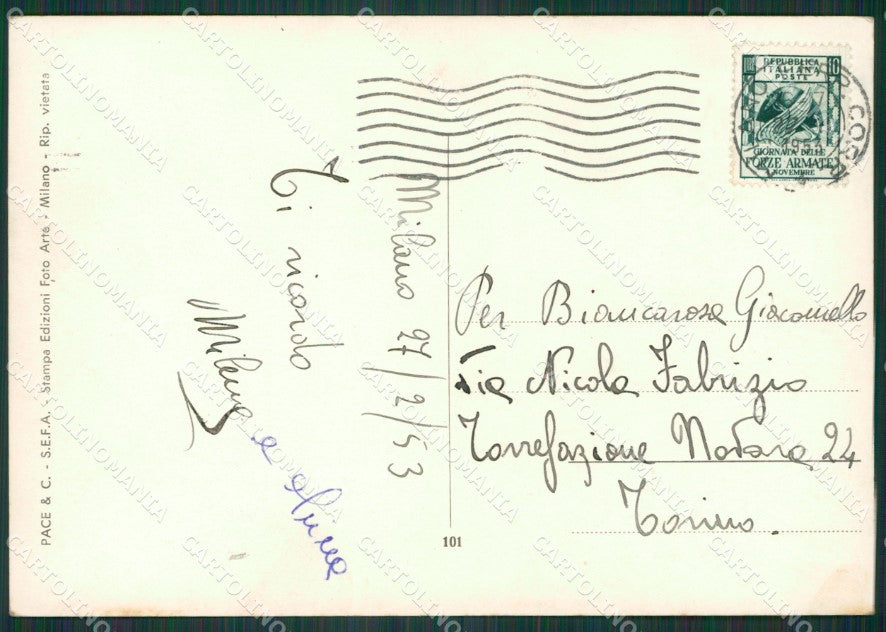 PACE & C. - S.E.F.A. - Stampa Edizioni Foto Arte - Milano - Rip. vietata
Milano 27/2/53
Ti ricordo
Milena
e
REPUBBLICA
ITALIANA
POSTE
10
1953
GIORNATA DELLE
FORZE ARMATE
4 NOVEMBRE
Per Biancarosa Giacomello
Via Nicola Fabrizio
Torrefazione Nodara 24
Torino.
101
CARTOLINOMANIA